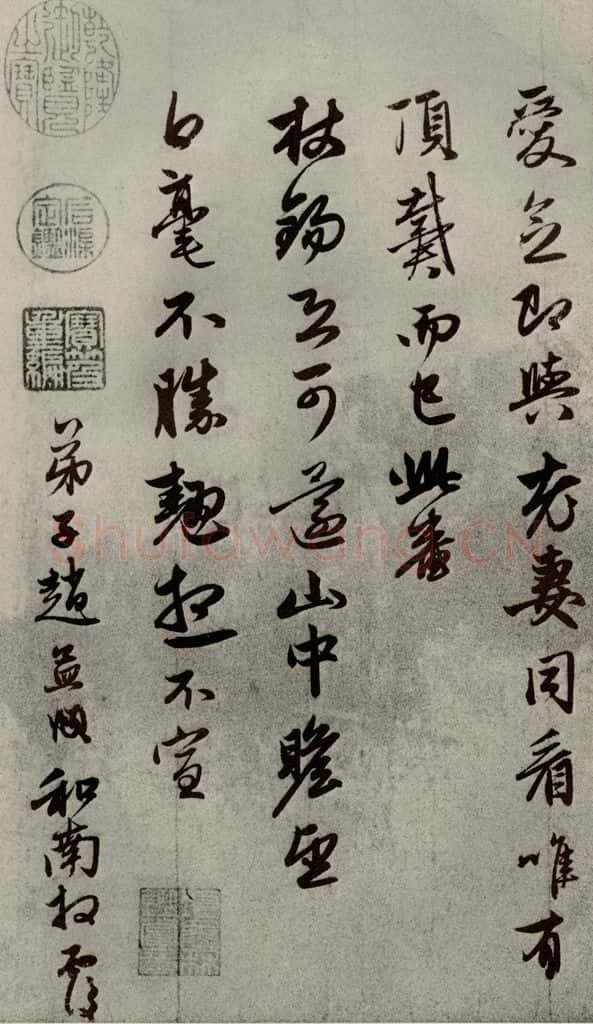 愛念即與老妻同看唯有
頂戴而已此番
杖錫可山中瞻望
白毫不勝翹想不宣
弟子趙孟頫和南拜覆
乾隆御覽之寶
石渠定鑑
寶笈重編
Shufawang.CN